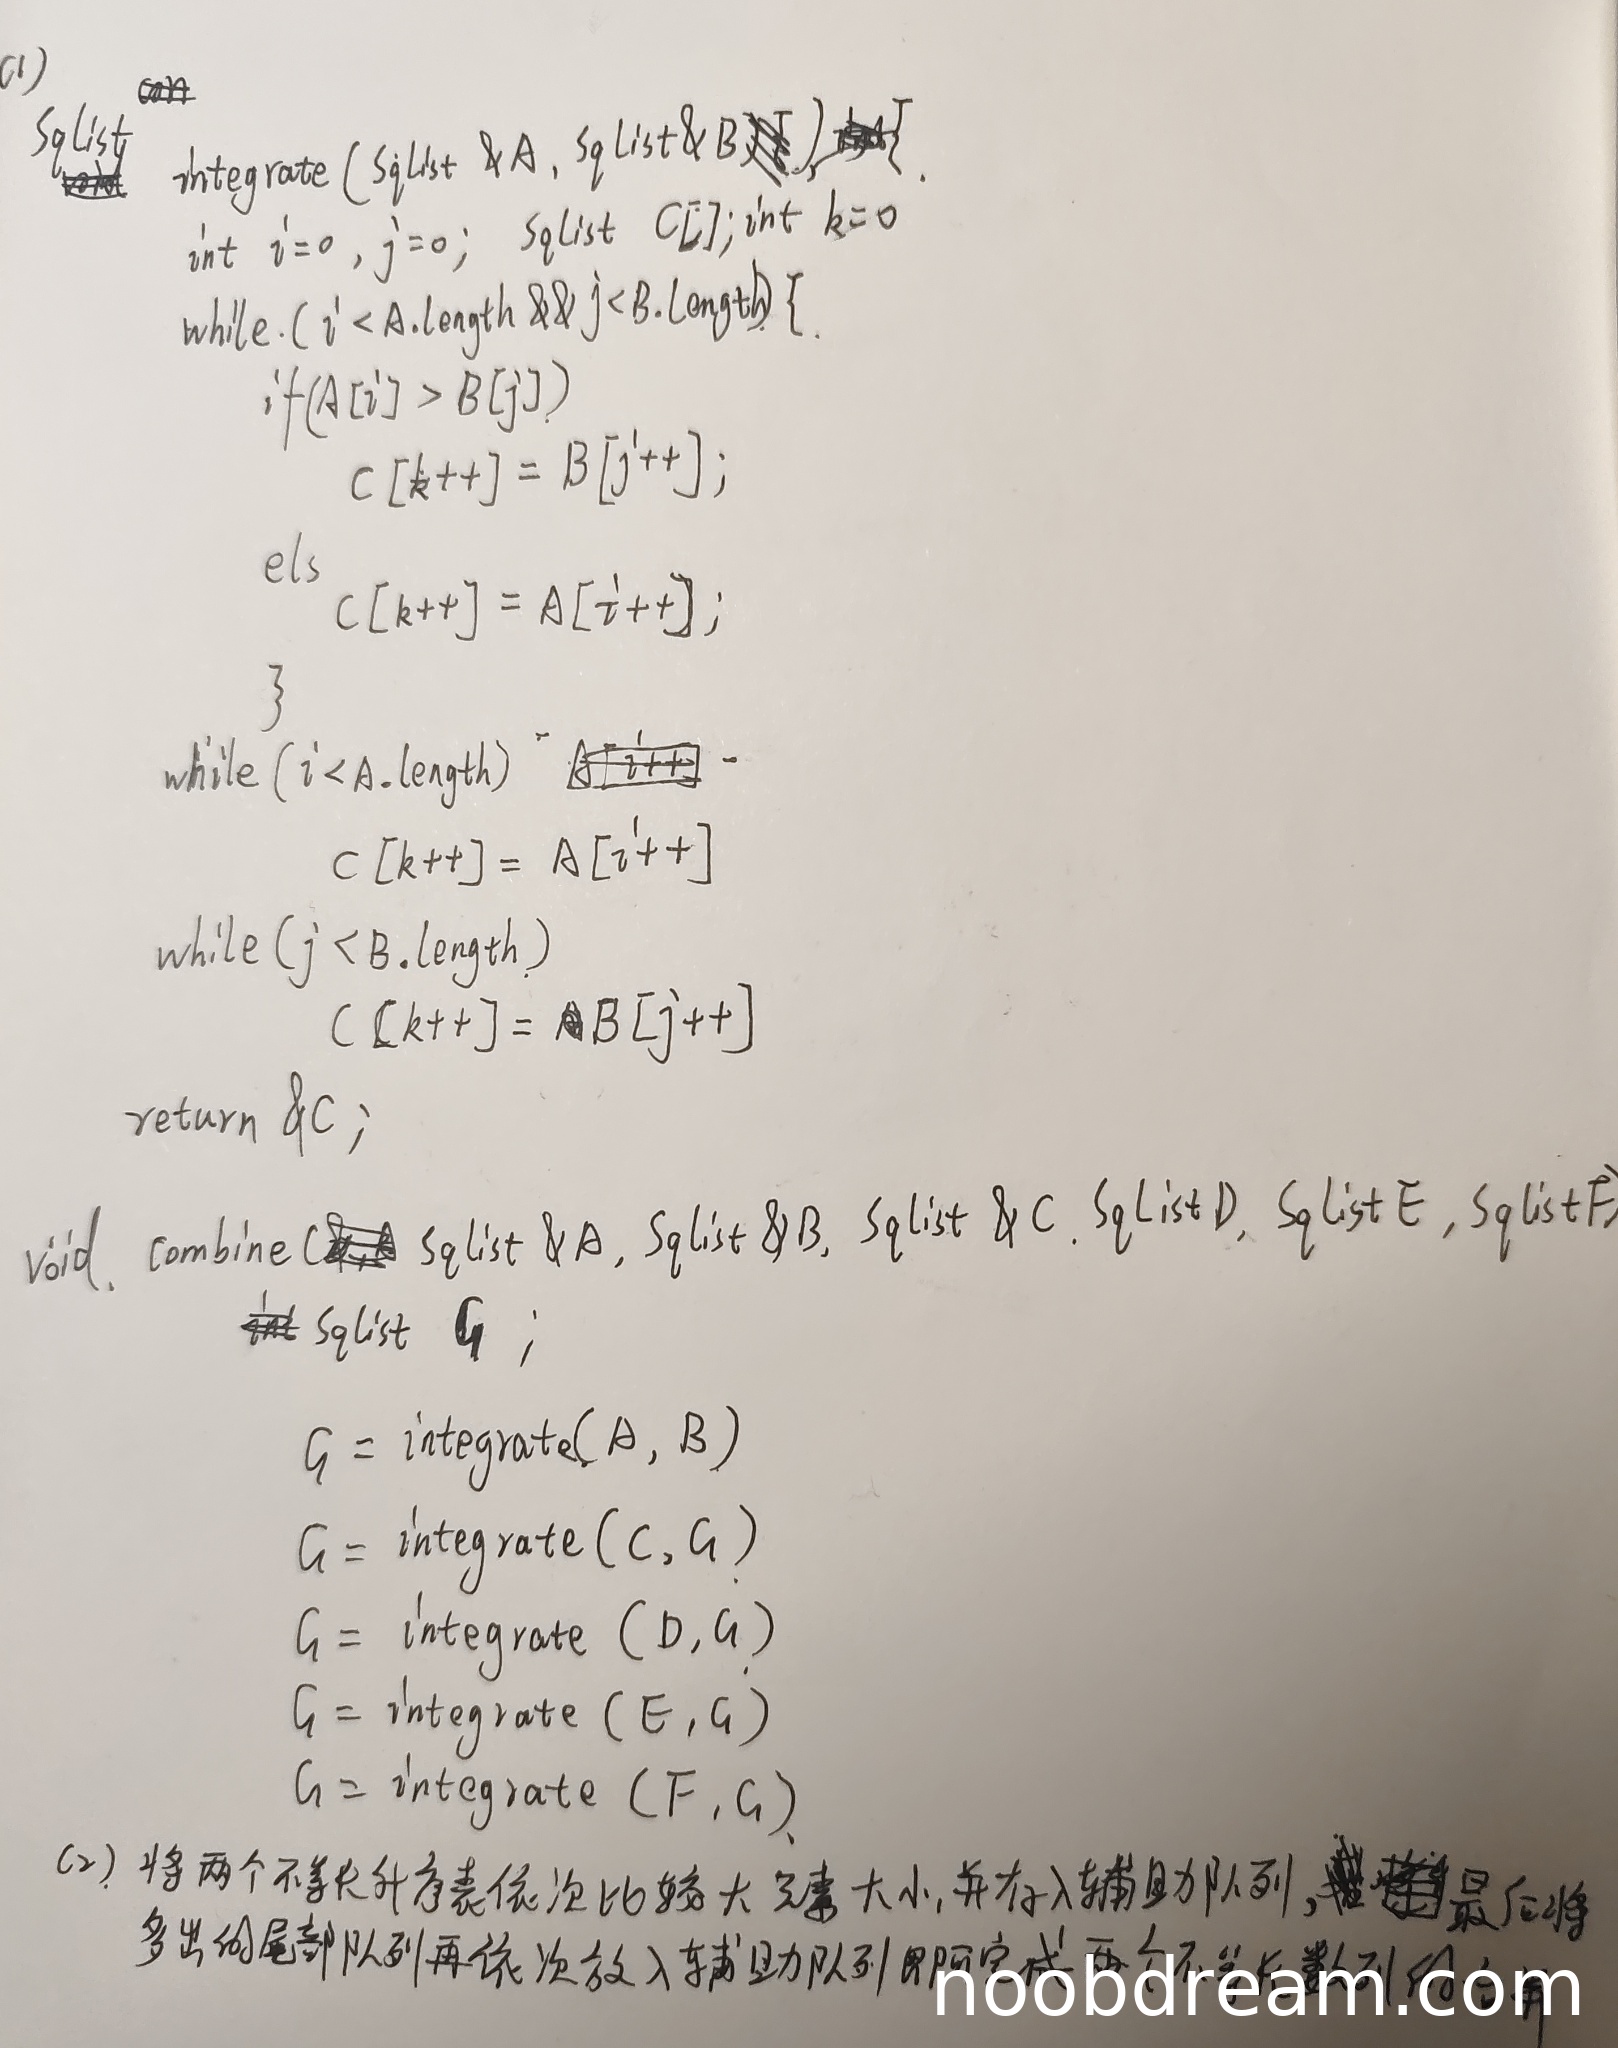 (1)
Sqlist integrate(Sqlist &A, Sqlist &B){
int i=0, j=0; Sqlist C[]; int k=0
while(i<A.length && j<B.length){
if(A[i] > B[j])
C[k++] = B[j++];
els
C[k++] = A[i++];
}
while(i<A.length)
C[k++] = A[i++]
while(j<B.length)
C[k++] = B[j++]
return &C;
void combine( Sqlist &A, Sqlist &B, Sqlist &C, SqList D, SqList E, SqlistF)
Sqlist G;
G = integrate(A, B)
G = integrate(C, G)
G = integrate(D, G)
G = integrate(E, G)
G = integrate(F, G)
(2) 将两个不等长升序表依次比较大元素大小,并存入辅助队列,最后将
多出的尾部队列再依次放入辅助队列即可完成两个不等长数列的合并
noobdream.com